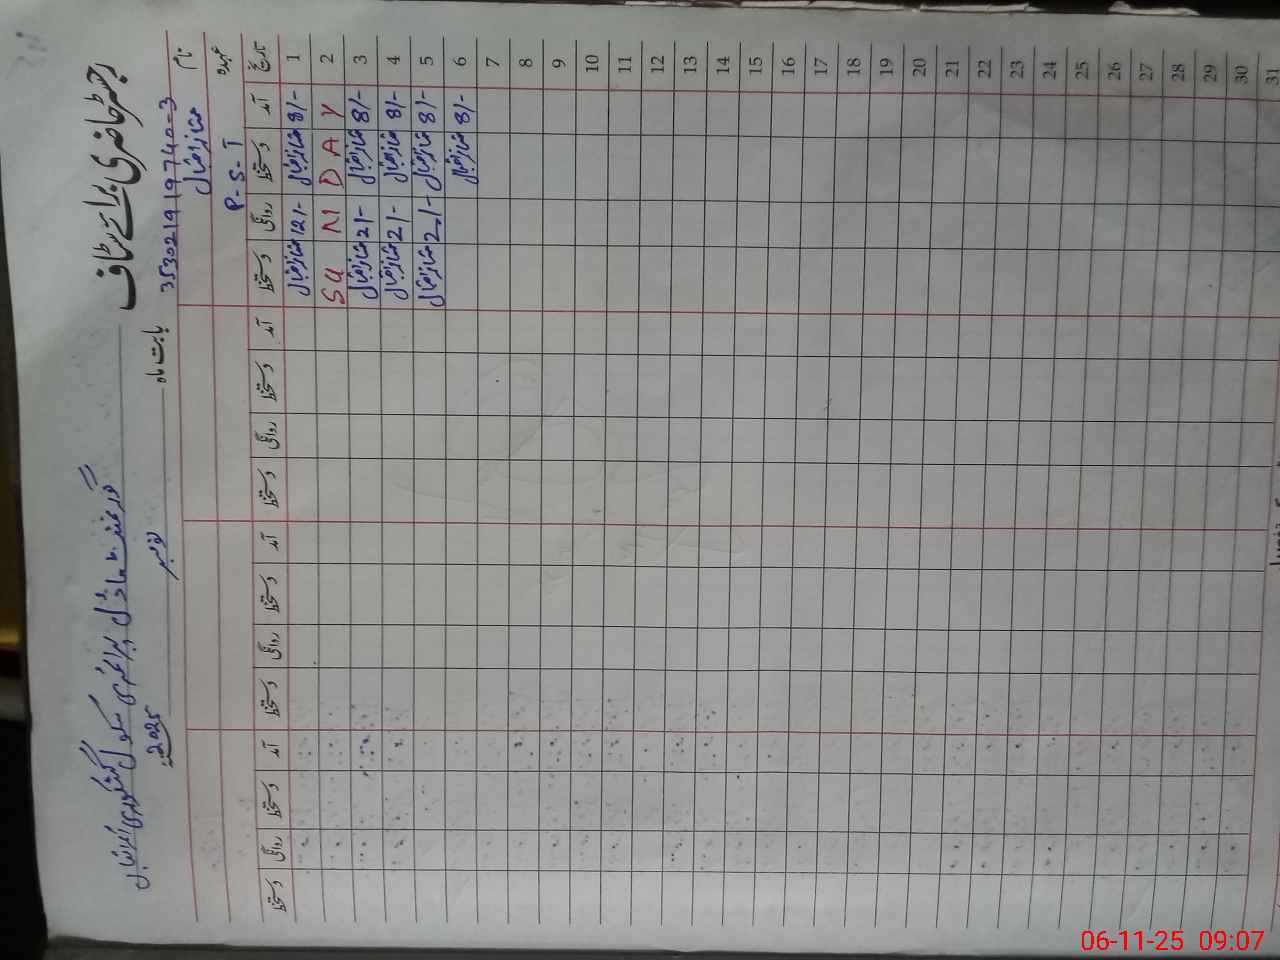 رجسٹر حاضری برائے سٹاف
گورنمنٹ ماڈل پرائمری سکول
بابت ماہ نومبر 2025
35302-1919740-3
نام ممتاز اقبال
عہدہ P-S-T
تاریخ آمد دستخط روانگی دستخط آمد دستخط روانگی دستخط آمد دستخط روانگی دستخط آمد دستخط روانگی دستخط
1 8/- ممتاز اقبال 12/- ممتاز اقبال
2 SUNDAY
3 8/- ممتاز اقبال 2/- ممتاز اقبال
4 8/- ممتاز اقبال 2/- ممتاز اقبال
5 8/- ممتاز اقبال 2/- ممتاز اقبال
6 8/- ممتاز اقبال
7
8
9
10
11
12
13
14
15
16
17
18
19
20
21
22
23
24
25
26
27
28
29
30
31
06-11-25 09:07